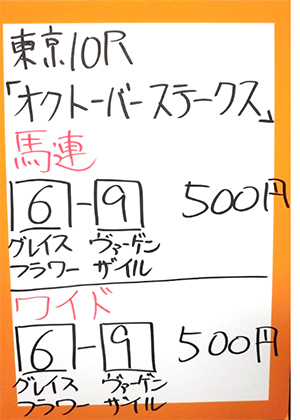 東京10R
「オクトーバーステークス」
馬連
6-9 500円
グレイス ヴァーゲン
フラワー ザイル
ワイド
6-9 500円
グレイス ヴァーゲン
フラワー ザイル